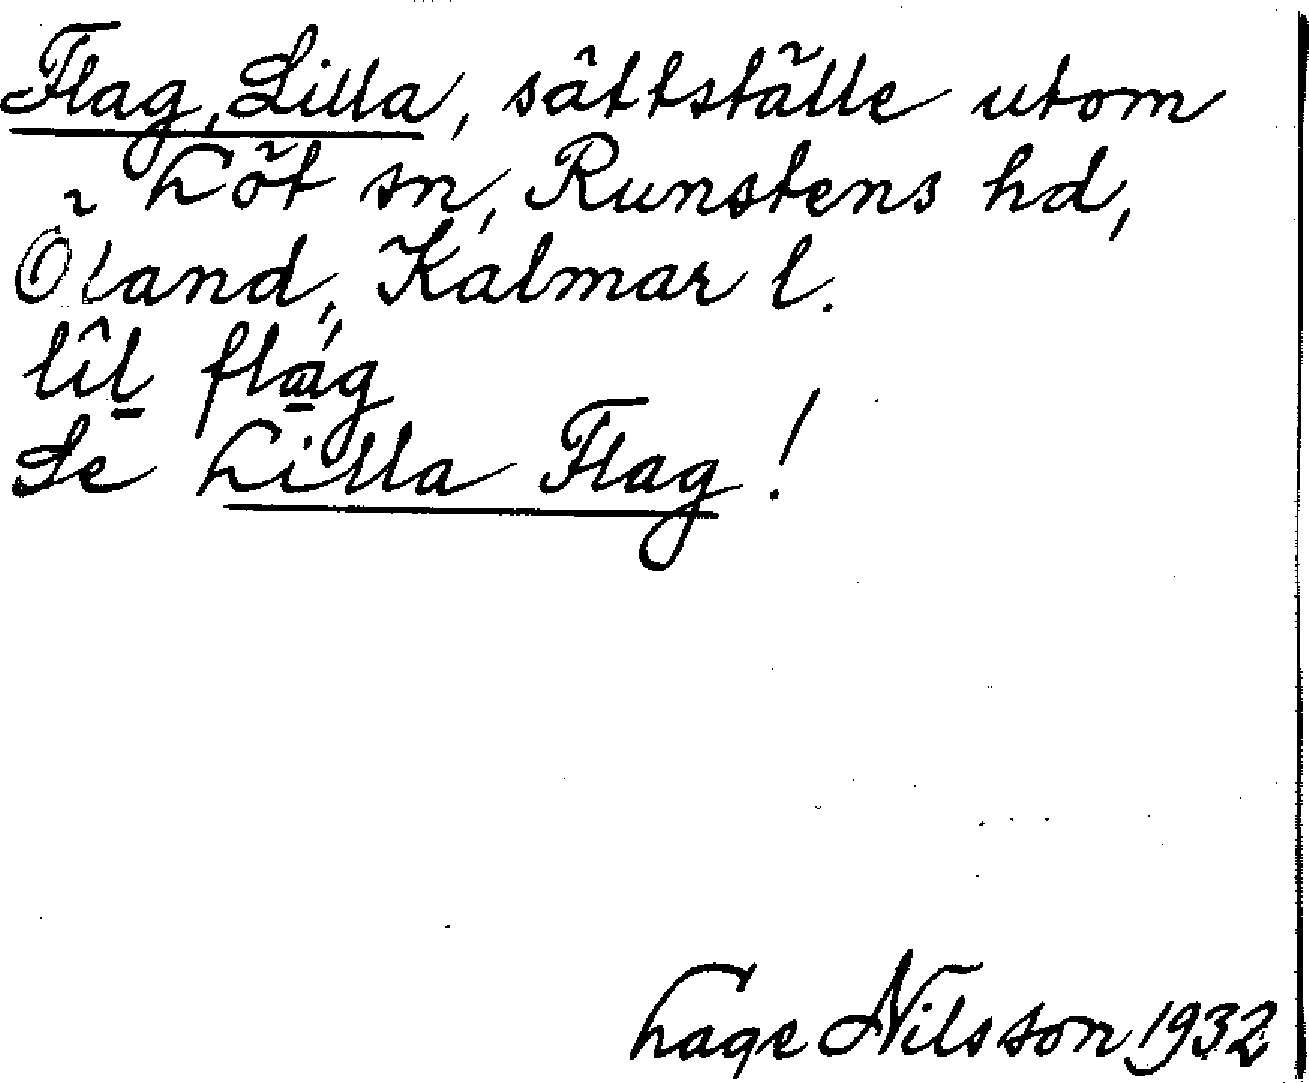 Flag, Lilla, sättställe utom
Löt sn, Runstens hd,
Öland, Kalmar l.
lîl̲ flá̲g
Se Lilla Flag!
Lage Nilsson 1932